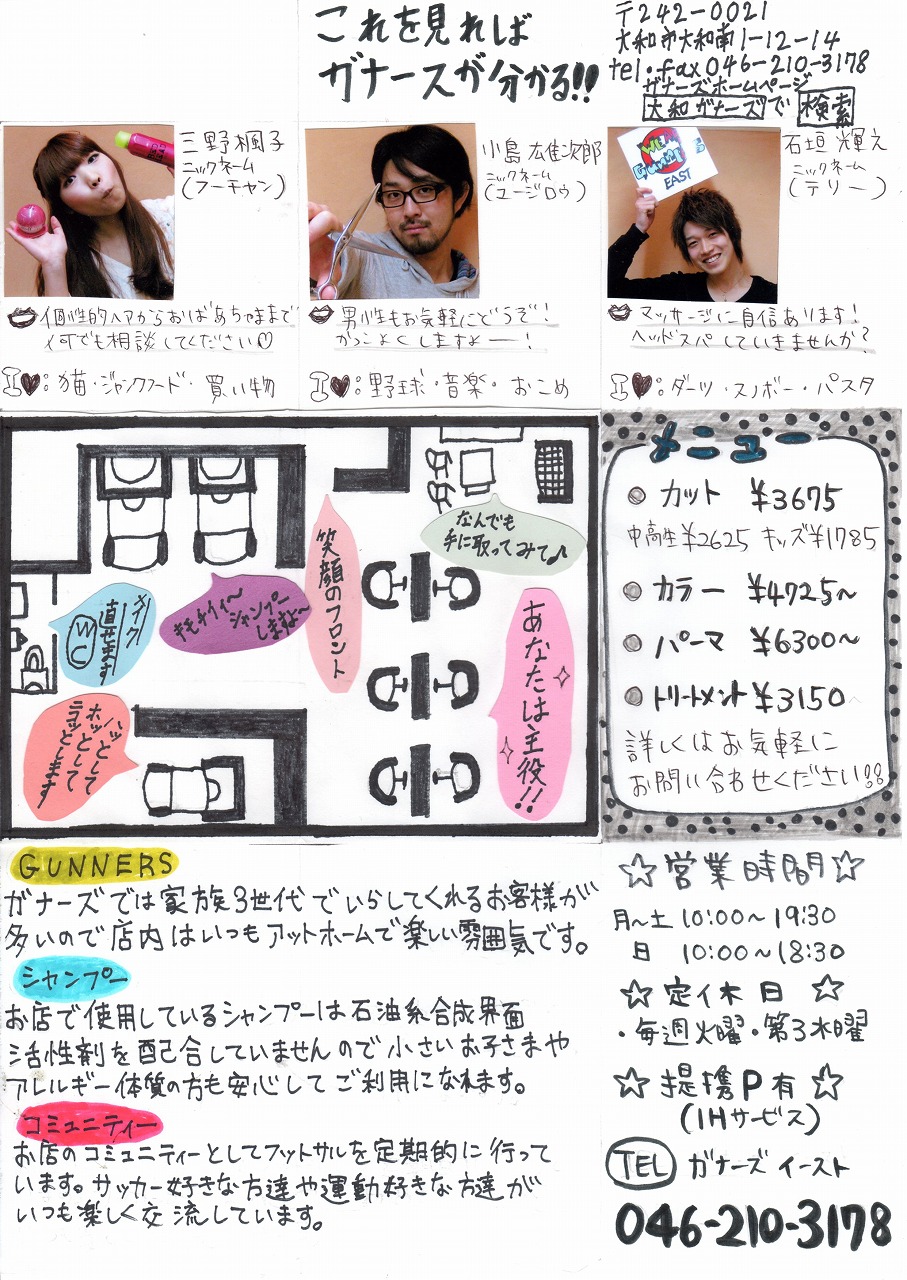 これを見れば
ガナーズが分かる!!
〒242-0021
大和市大和南1-12-14
tel・fax 046-210-3178
ガナーズホームページ
大和ガナーズで検索
三野楓子
ニックネーム
(フーチャン)
個性的ヘアからおばあちゃままで
何でも相談してください♡
I♥:猫・ジャンクフード・買い物
小島雄次郎
ニックネーム
(ユージロウ)
男性もお気軽にどうぞ!
かっこよくしますよー!
I♥:野球・音楽・おこめ
EAST
石垣輝え
ニックネーム
(テリー)
マッサージに自信あります!
ヘッドスパしていきませんか?
I♥:ダーツ・スノボー・パスタ
なんでも
手に取ってみて♪
笑顔のフロント
キモチイィ〜
シャンプー
しますよ〜
直せます
WC
あなたは主役!!
ハッとして
ホッとして
ニコッとします
メニュー
カット ¥3675
中高生¥2625 キッズ¥1785
カラー ¥4725〜
パーマ ¥6300〜
トリートメント ¥3150
詳しくはお気軽に
お問い合わせください!!
GUNNERS
ガナーズでは家族3世代でいらしてくれるお客様が
多いので店内はいつもアットホームで楽しい雰囲気です。
シャンプー
お店で使用しているシャンプーは石油系合成界面
活性剤を配合していませんので小さいお子さまや
アレルギー体質の方も安心してご利用になれます。
コミュニティー
お店のコミュニティーとしてフットサルを定期的に行って
います。サッカー好きな方達や運動好きな方達が
いつも楽しく交流しています。
☆営業時間☆
月〜土 10:00〜19:30
日 10:00〜18:30
☆定休日☆
・毎週火曜・第3水曜
☆提携P有☆
(IHサービス)
TEL ガナーズ イースト
046-210-3178